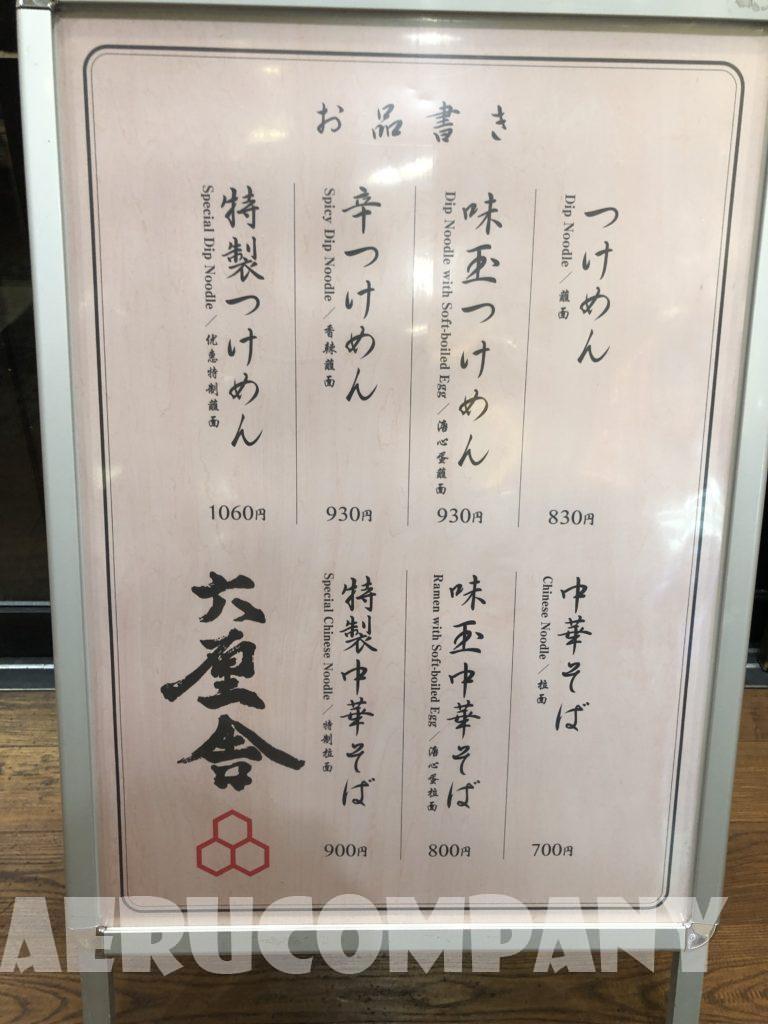 お品書き
つけめん
Dip Noodle／蘸面
830円
味玉つけめん
Dip Noodle with Soft-boiled Egg／溏心蛋蘸面
930円
辛つけめん
Spicy Dip Noodle／香辣蘸面
930円
特製つけめん
Special Dip Noodle／优惠特制蘸面
1060円
中華そば
Chinese Noodle／拉面
700円
味玉中華そば
Ramen with Soft-boiled Egg／溏心蛋拉面
800円
特製中華そば
Special Chinese Noodle／特制拉面
900円
六厘舎
AERUCOMPANY